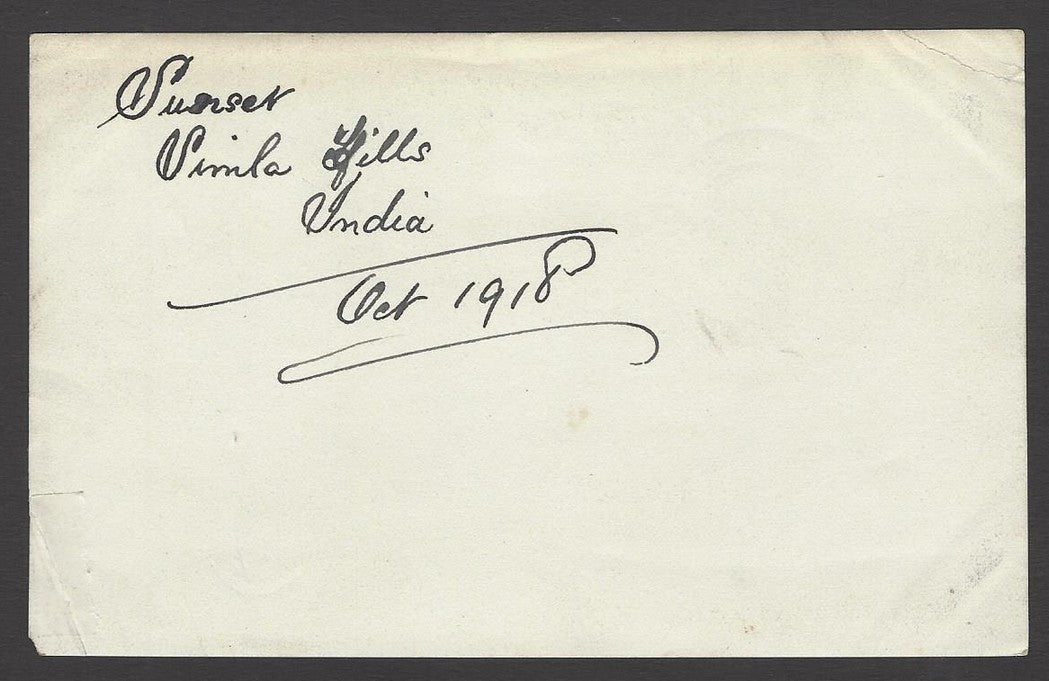 Sunset
Simla Hills
India
Oct 1918